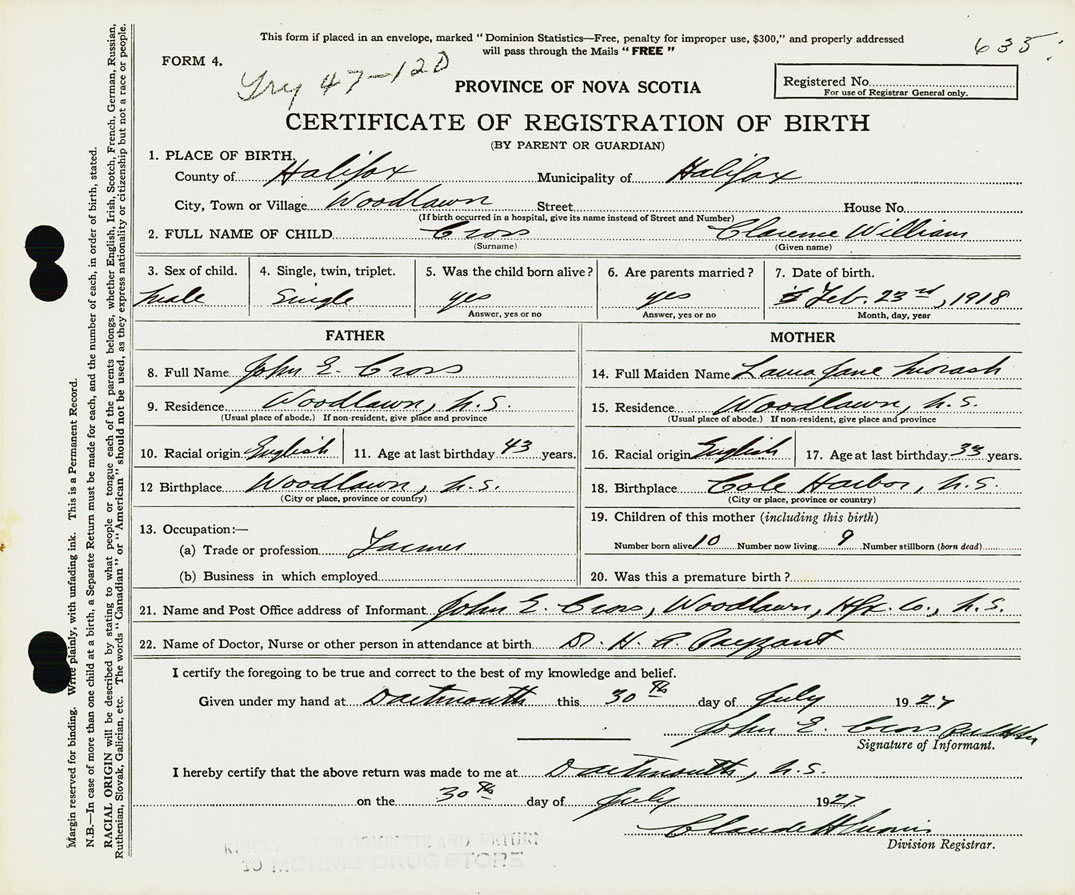 This form if placed in an envelope, marked "Dominion Statistics—Free, penalty for improper use, $300," and properly addressed
will pass through the Mails "FREE"
635
FORM 4.
Try 47-120
PROVINCE OF NOVA SCOTIA
Registered No.
For use of Registrar General only.
CERTIFICATE OF REGISTRATION OF BIRTH
(BY PARENT OR GUARDIAN)
1. PLACE OF BIRTH,
County of Halifax Municipality of Halifax
City, Town or Village Woodlawn Street House No.
(If birth occurred in a hospital, give its name instead of Street and Number)
2. FULL NAME OF CHILD Cross Clarence William
(Surname) (Given name)
3. Sex of child. 4. Single, twin, triplet. 5. Was the child born alive? 6. Are parents married? 7. Date of birth.
Male Single yes yes Feb. 23rd, 1918
Answer, yes or no Answer, yes or no Month, day, year
FATHER MOTHER
8. Full Name John E. Cross 14. Full Maiden Name Laura Jane Morash
9. Residence Woodlawn, N.S. 15. Residence Woodlawn, N.S.
(Usual place of abode.) If non-resident, give place and province (Usual place of abode.) If non-resident, give place and province
10. Racial origin English 11. Age at last birthday 43 years. 16. Racial origin English 17. Age at last birthday 33 years.
12 Birthplace Woodlawn, N.S. 18. Birthplace Cole Harbor, N.S.
(City or place, province or country) (City or place, province or country)
13. Occupation:— 19. Children of this mother (including this birth)
(a) Trade or profession Farmer Number born alive 10 Number now living 9 Number stillborn (born dead)
(b) Business in which employed 20. Was this a premature birth?
21. Name and Post Office address of Informant John E. Cross, Woodlawn, Hfx. Co., N.S.
22. Name of Doctor, Nurse or other person in attendance at birth Dr. H. A. Payzant
I certify the foregoing to be true and correct to the best of my knowledge and belief.
Given under my hand at Dartmouth this 30th day of July 1927
John E. Cross
Signature of Informant.
I hereby certify that the above return was made to me at Dartmouth, N.S.
on the 30th day of July 1927
Claude H
Division Registrar.
COMPLETE AND RETURN
TO MORRIS DRUG STORE
Margin reserved for binding. Write plainly, with unfading ink. This is a Permanent Record.
N.B.—In case of more than one child at a birth, a Separate Return must be made for each, and the number of each, in order of birth, stated.
RACIAL ORIGIN will be described by stating to what people or tongue each of the parents belongs, whether English, Irish, Scotch, French, German, Russian,
Ruthenian, Slovak, Galician, etc. The words "Canadian" or "American" should not be used, as they express nationality or citizenship but not a race or people.